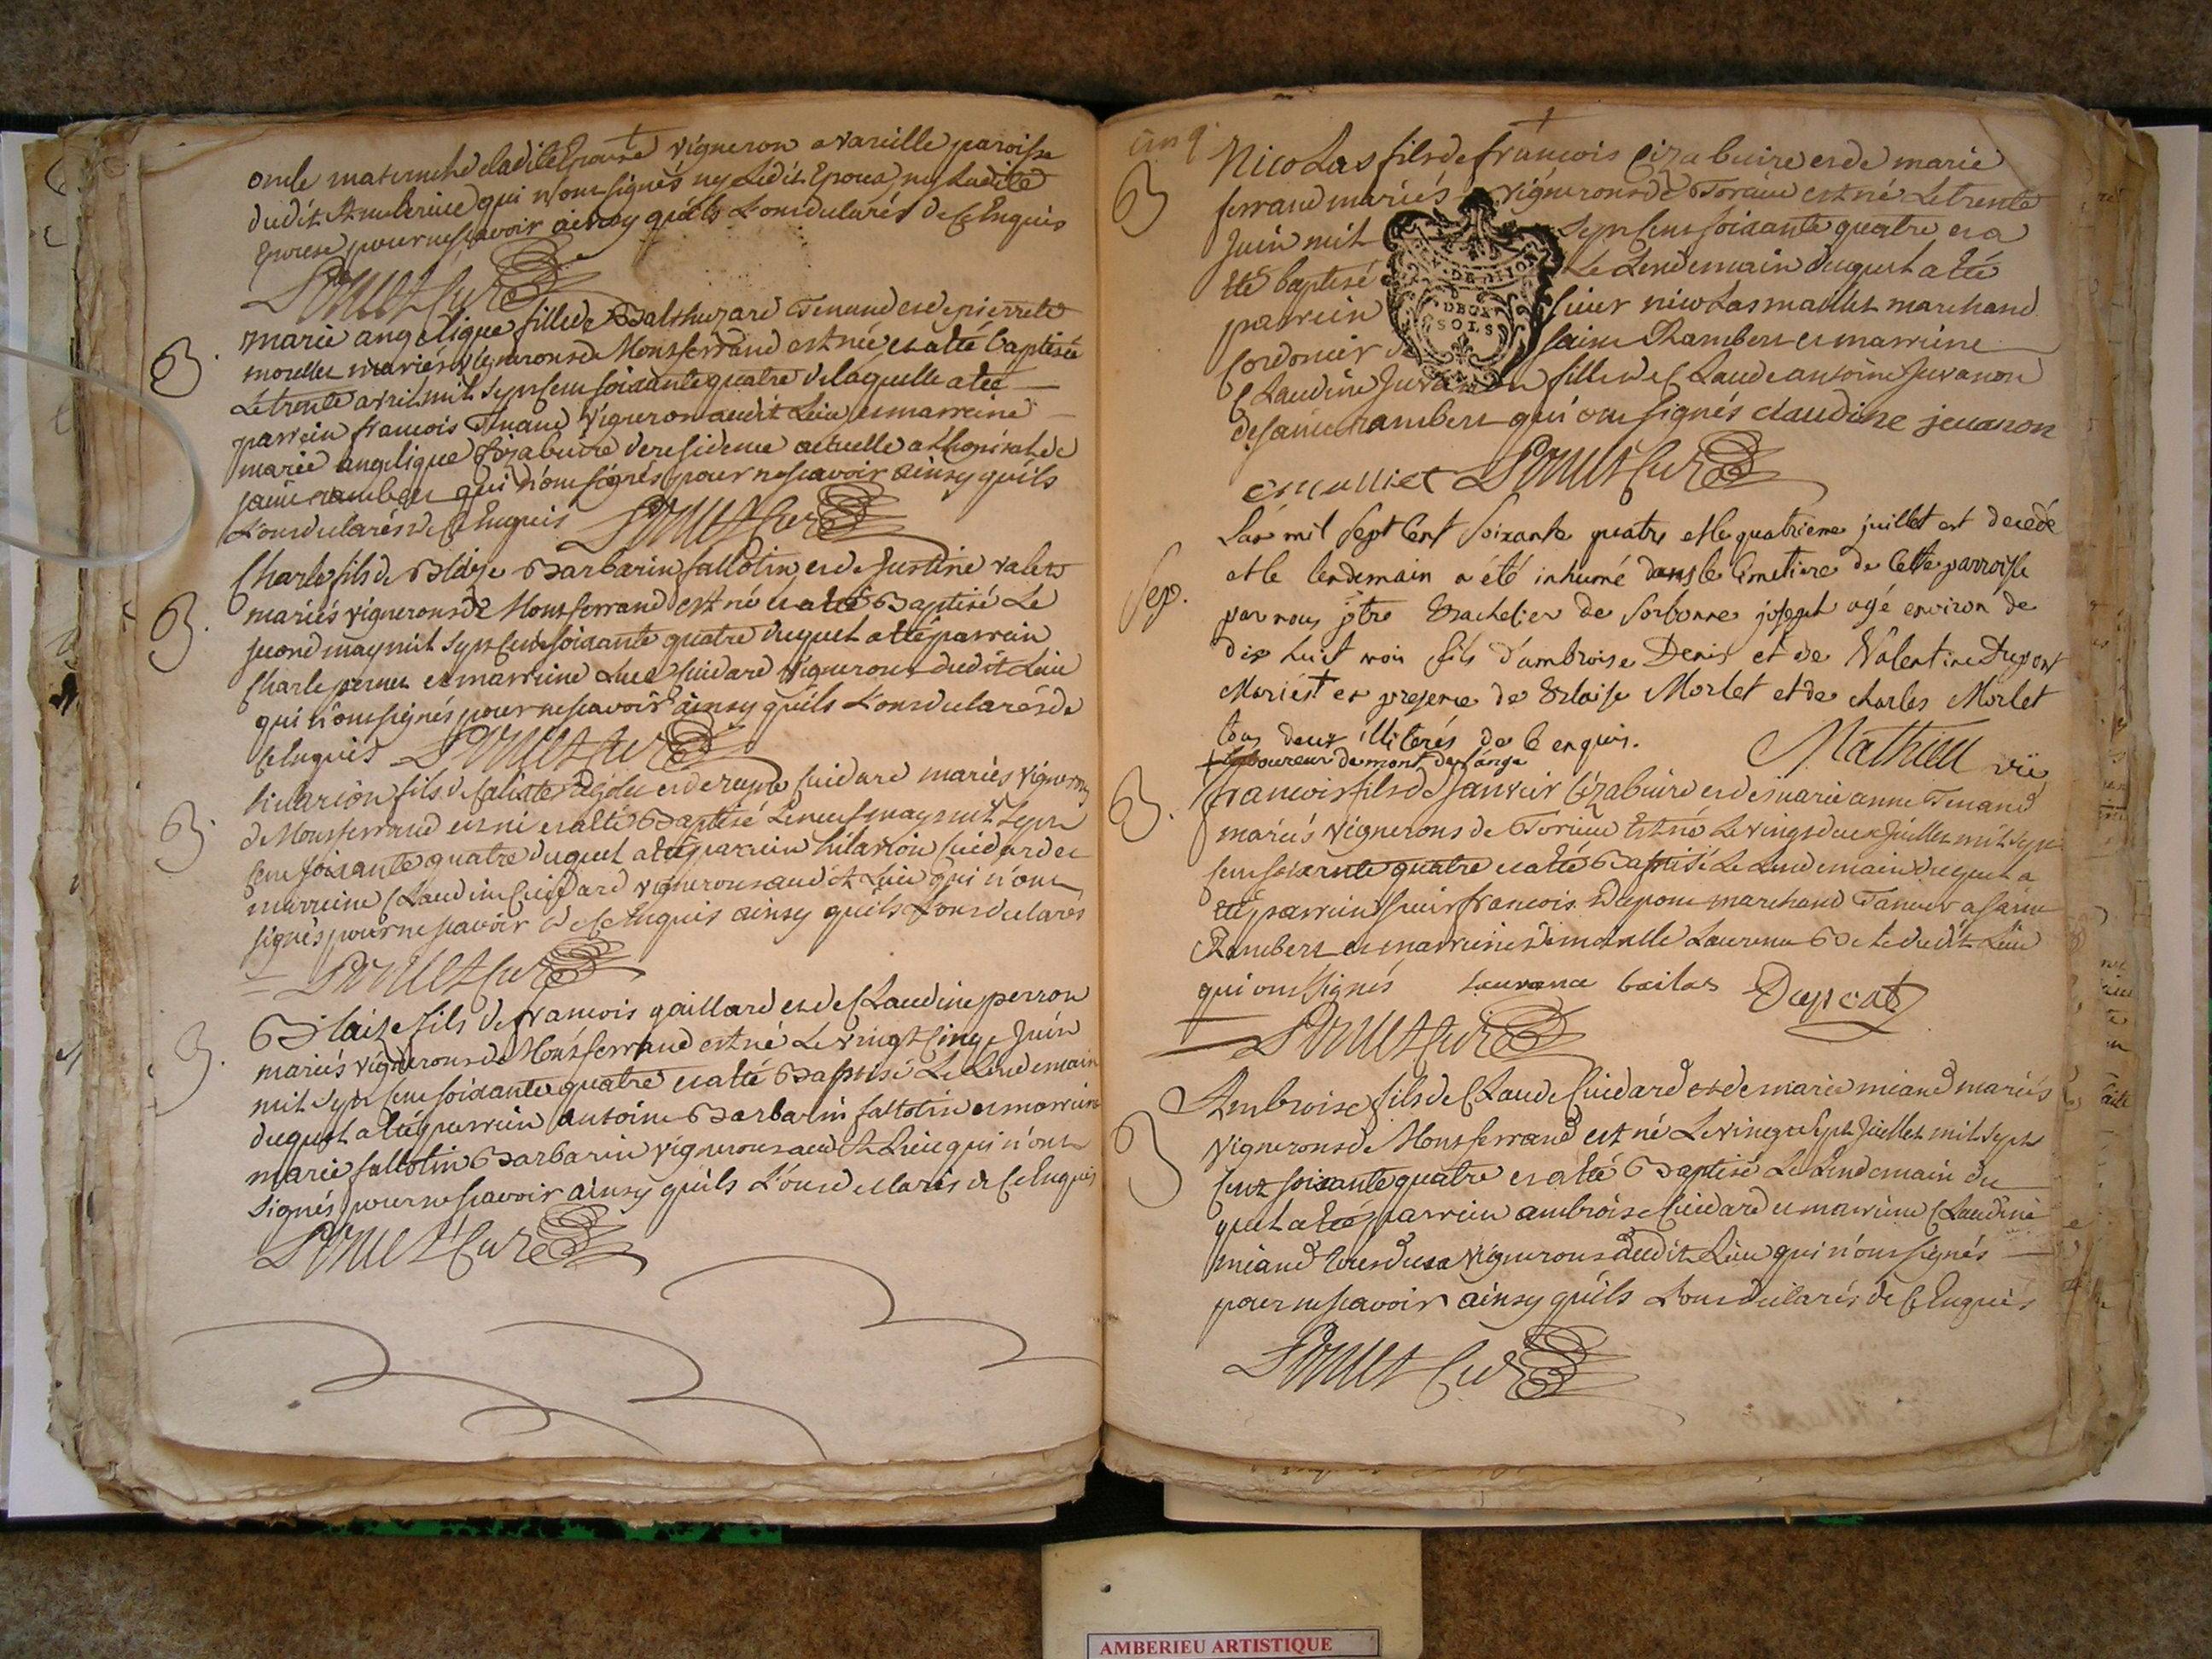 oncle maternel de ladite Epouse vigneron a vareille paroisse
dudit Amberieu qui n'ont signés ny Ledit Epoux ny Ladite
Epouse pour ne scavoir ainsy quils L'ont declarés de ce Enquis
Curé
B.
marie angelique fille de Balthazard Tenand et de pierrette
morellet mariés vignerons de Montferrand est née et a été baptisée
Le trente avril mil sept cent soixante quatre de laquelle a été
parrein francois Tenand vigneron audit Lieu et marreine
marie angelique Cizabuire de residence actuelle a L'hopital de
saint rambert qui n'ont signés pour ne scavoir ainsy quils
L'ont declarés de ce Enquis Curé
B.
Charle fils de Blaize Barbarin fallotin et de Justine
mariés vignerons de Montferrand est né et a été Baptisé Le
second may mil sept cent soixante quatre duquel a été parrein
Charle et marreine Guidard vignerons dudit Lieu
qui n'ont signés pour ne scavoir ainsy quils L'ont declarés de
ce Enquis Curé
B.
hilarion fils de et de Guidard mariés vignerons
de Montferrand est né et a été Baptisé Le neuf may mil sept
cent soixante quatre duquel a été parrein hilarion Guidard et
marreine Claudine Guidard vignerons audit Lieu qui n'ont
signés pour ne scavoir de ce Enquis ainsy quils L'ont declarés
Curé
B.
Blaize fils de francois gaillard et de Claudine perron
mariés vignerons de Montferrand est né Le vingt cinq Juin
mil sept cent soixante quatre et a été Baptisé Le Lendemain
duquel a été parrein antoine Barbarin fallotin et marreine
marie fallotin Barbarin vignerons audit Lieu qui n'ont
signés pour ne scavoir ainsy quils L'ont declarés de ce Enquis
Curé
cinq
B
Nicolas fils de francois Cizabuire et de marie
ferrand mariés vignerons de Torcieu est né Le trente
Juin mil sept cent soixante quatre et a
été baptisé Le Lendemain duquel a été
parrein sieur nicolas maillet marchand
Cordonier de saint Rambert et marreine
Claudine Juvanon fille de Claude antoine Juvanon
de saint rambert qui ont signés claudine jeuanon
DE DIION
DEUX
SOLS
Curé
Sep.
Lan mil sept Cent soixante quatre et le quatrieme juillet est decedé
et le lendemain a été inhumé dans le Cimetiere de Cette parroisse
par nous ptre Bachelier de Sorbonne joseph agé environ de
dix huit mois fils d'ambroise Denis et de Valentine Dupont
Mariés+ en presence de Blaise Morlet et de charles Morlet
tous deux illiterés de ce enquis.
+ laboureur de mont de l'ange
Mathieu vic
B.
francois fils de Janvier Cizabuire et de marie anne Tenand
mariés vignerons de Torcieu Est né Le vingt deux Juillet mil sept
cent soixante quatre et a été Baptisé Le Lendemain duquel a
été parrein sieur francois Dupont marchand Taneur a saint
Rambert et marreine demoiselle Laurence dudit Lieu
qui ont signés
Curé
B
Ambroise fils de Claude Guidard et de marie miand mariés
vignerons de Montferrand est né Le vingt sept Juillet mil sept
cent soixante quatre et a été Baptisé Le Lendemain du
quel a été parrein ambroise Guidard et marreine Claudine
miand tous deux vignerons dudit Lieu qui n'ont signés
pour ne scavoir ainsy quils L'ont declarés de ce Enquis
Curé
AMBERIEU ARTISTIQUE